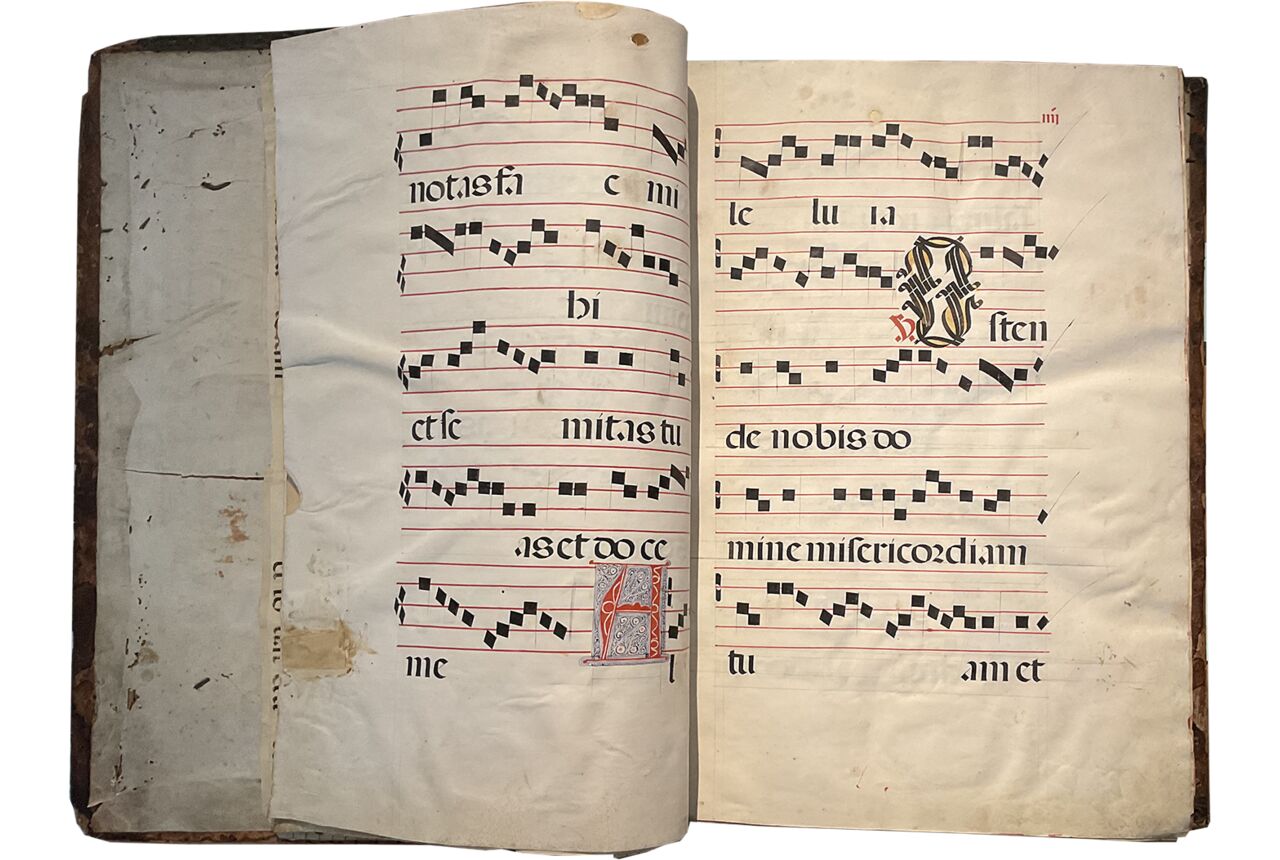 notas fa c mi
bi
et se mitas tu
as et do ce
me Al
iiij
le lu ia
V. Osten
de nobis do
mine misericordiam
tu am et